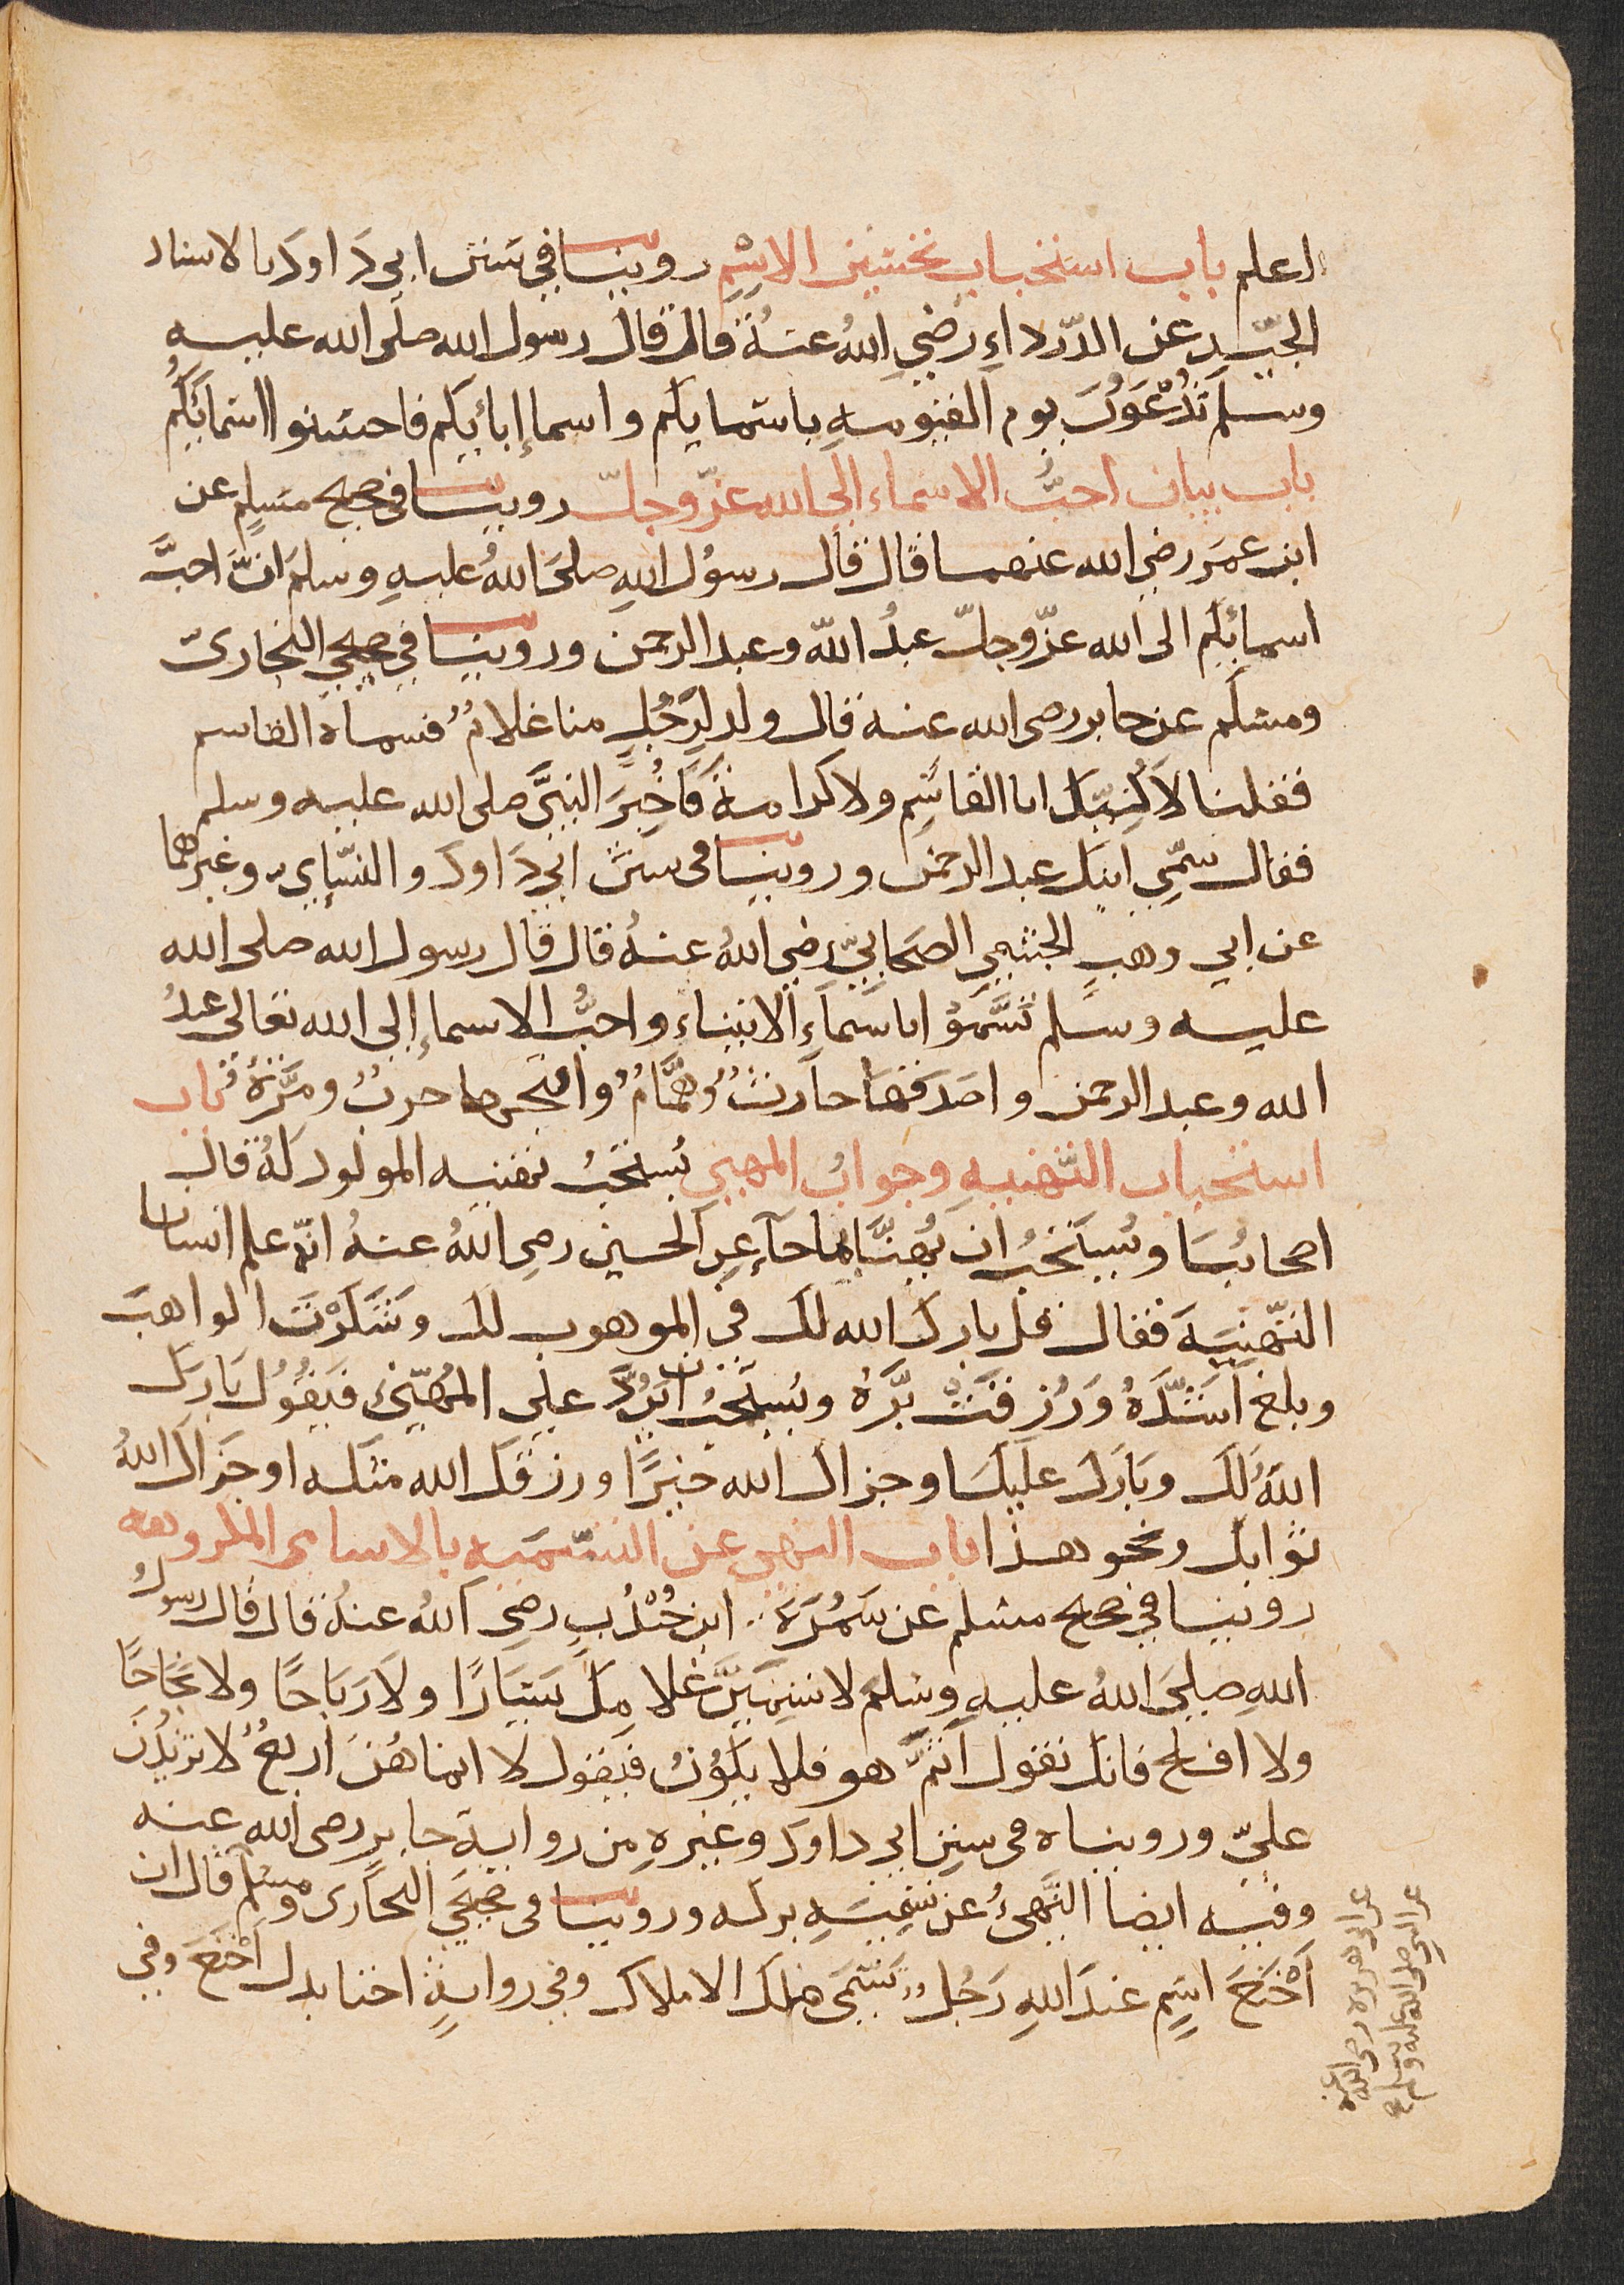 اعلم باب استحباب تحسين الاسْمِ روينا في سنن ابي دَاودَ بالاسناد
الجيّدِ عن الدّرداءِ رَضِي اللهُ عنهُ قال قال رسول الله صلّى الله عليه
وسلم تُدْعَوْنَ يوم القيومه باسمايكم واسماإ ابائيكم فاحسنوا اسمائكُم
باب بيان احبُّ الاسماء الى الله عزّوجلّ روينا في صحيح مسلمٍ عن
ابن عمَر رضي الله عنهما قال قال رسُول اللهِ صلىَ اللهُ عليهِ وسلمَ انَّ احبَّ
اسمائكم الى الله عزّوجلّ عبدُ اللّه وعبد الرحمن وروينا في صحيحي البخاريّ
ومسلم عن جابر رضى الله عنه قال ولد لِرَجُلٍ منا غلامٌ فسماه القاسم
فقلنا لاَ نُكنِيّكَ ابا القاسِم ولا كرامة فَاَخُبِرَ النبيَّ صلى الله عليه وسلم
فقال سَمِّي ابنك عبد الرحمن وروينا في سنن ابي دَاودَ والنسّإي وغيرهما
عن ابي وهبٍ الجشمي الصحَابيّ رضي اللهُ عنهُ قال قال رسول الله صلى الله
عليه وسلم تَسَّمَوْ اباسَماَءِ الانبياء واحبُّ الاسماإ الى الله تعالى عبدُ
الله وعبد الرحمن واصَدَقهَا حارثٌ وهمَّامٌ واقبحها حربٌ ومَرَّةٌ باب
استحباب التَّهنيهِ وجوابُ المهني يُستحبُ تهنيه المولود لهُ قال
اصحابُنَا ويُستَحَبُ ان يُهنَّا بما جآء عن الحسين رضي اللهُ عنهُ انّهُ علم انسانا
التّهنِيَة فقال قل بارك الله لك في الموهوب لك وشَكَرْتَ الواهبَ
وبلغ اَشَدّهُ وَرُزقتْ بَّرهُ ويُستحبُ ان يرُدَّ على المُهنّئ فيَقُولُ بَارَكَ
اللهُ لَكَ وبَارَكَ عليكَ اوجزاك الله خيرًا ورزقك الله مثله اوجَزاكَ اللهُ
ثوابك ونحو هذا باب النهي عن التسّمَيه بالاسامى المكروهه
روينا في صحيح مسلم عن سَمُرَةَ ابن جُنْدُبِ رضي اللهُ عنهُ قال قال رسولُ
اللهِ صلىَ اللهُ عليهِ وسلمَ لا تسِميَنَّ غلامِكَ يَسَارًا ولاَ رَبَاحًا ولا نجَاحًا
ولا افلح فانك تقول اَثمَّ هو فلا يَكوُنُ فيَقول لا انما هُنَ اربعٌ لا تزيدُنَ
عليّ وروينا ه في سننِ ابي داود وغيرهِ من رواية جابرِ رضى الله عنه
وفيه ايضا النَّهىُ عن تسِميَةِ بركه وروينا في صحيحَي البخَارى ومسلم قال ان
اَخْنَعَ اسِمٍ عندَ اللهِ رَجُلٌ تَسَمّى ملك الاملاك وفي روايةٍ اخنا بدل اَخْنَعَ وفي
عن ابي هريره رضى الله عنه
عن النبي صلى الله عليه وسلم